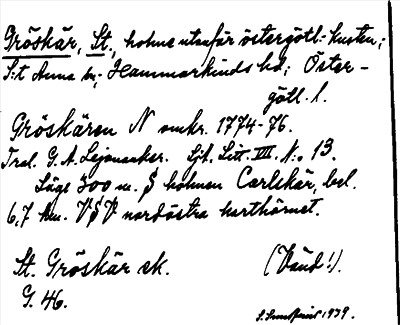 Gröskär, St., holme utanför östergötl. kusten;
S:t Anna sn; Hammarkinds hd; Öster-
götl. l.
Gröskären N omkr. 1774-76.
Tral. G. A. Lejonanker. Sjk. Litt. VIII. N:o 13.
Läge 300 m. S holmen Carlskär, bel.
6,7 km. VSV nordöstra karthörnet.
St. Gröskär ek. (Vänd!).
G. 46.
1939.